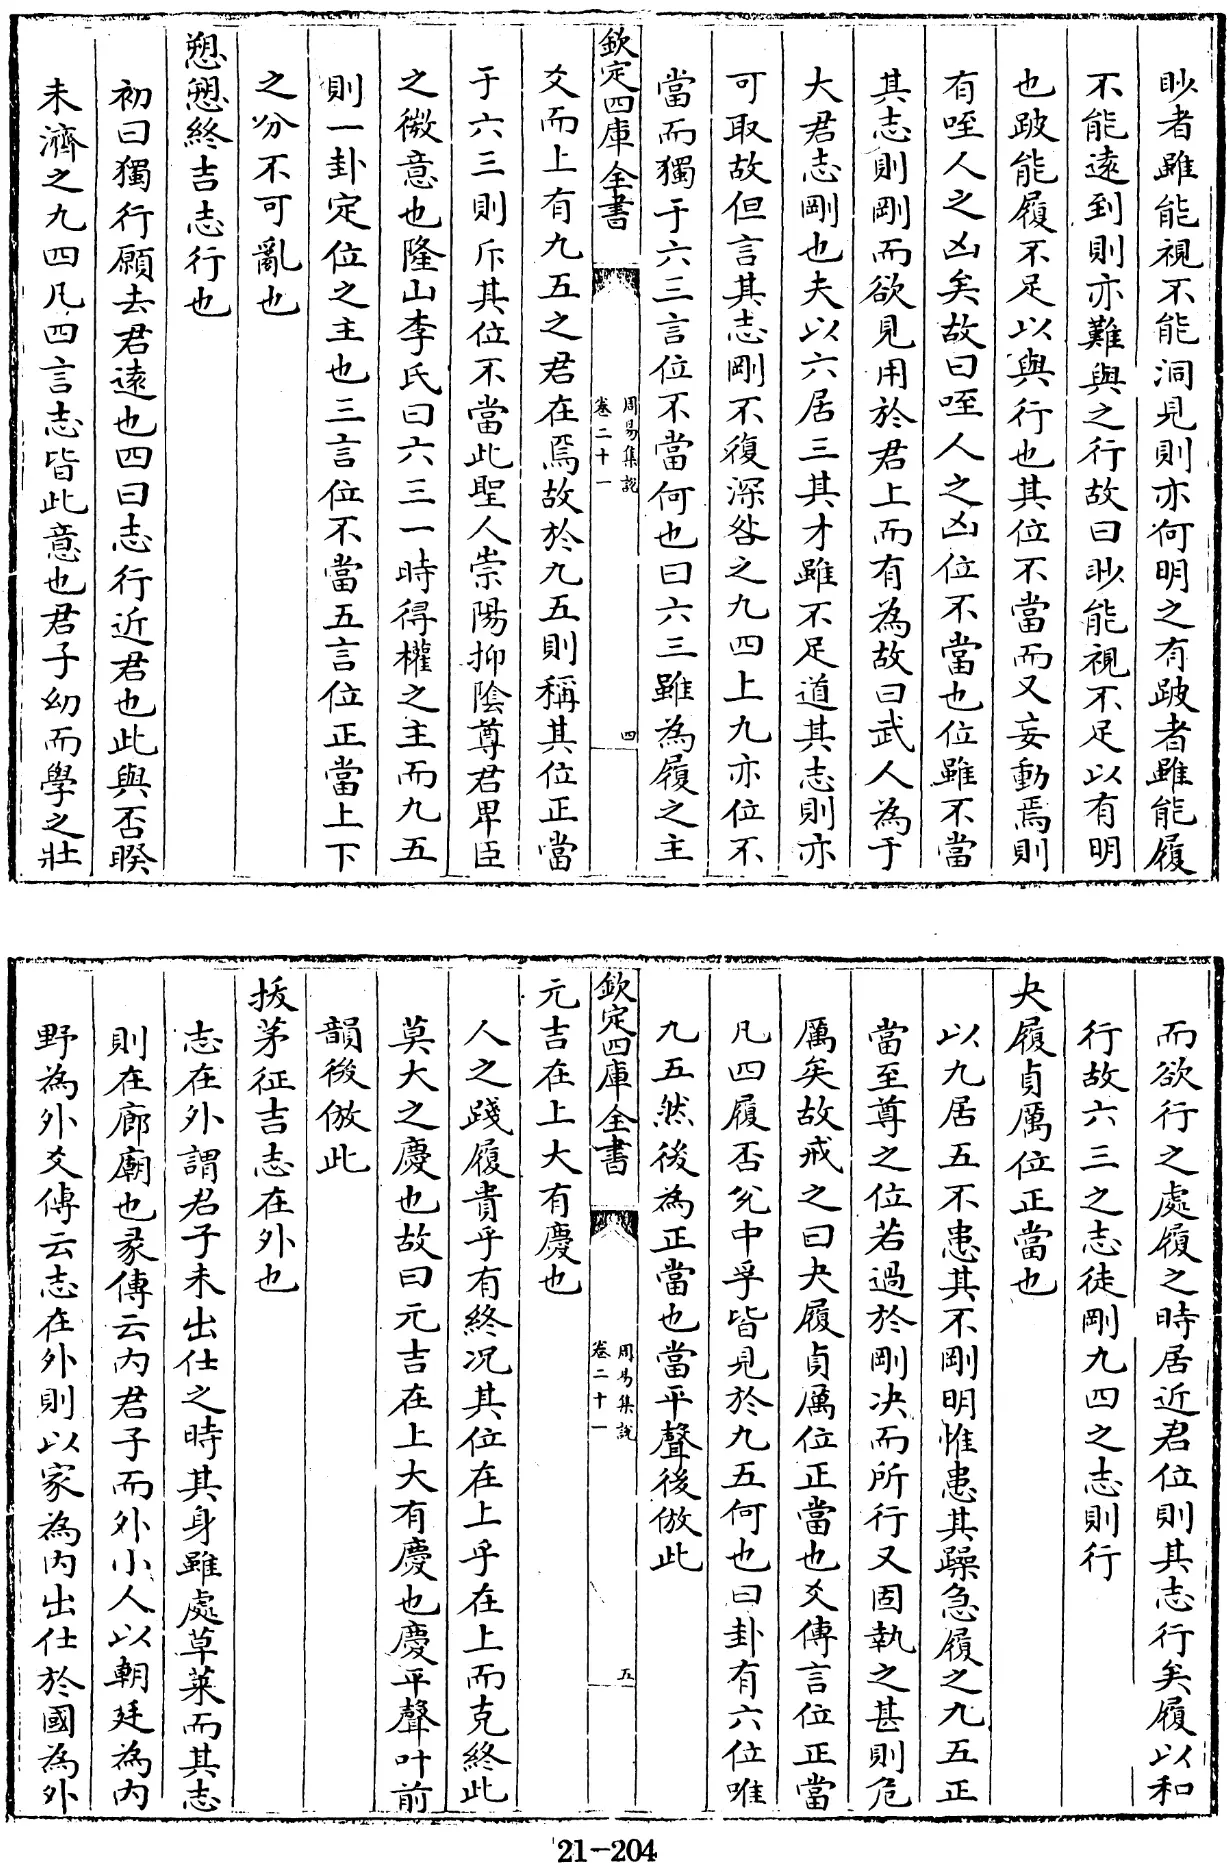 眇者雖能視不能洞見則亦何明之有跛者雖能履
不能遠到則亦難與之行故曰眇能視不足以有明
也跛能履不足以與行也其位不當而又妄動焉則
有咥人之凶矣故曰咥人之凶位不當也位雖不當
其志則剛而欲見用於君上而有為故曰武人為于
大君志剛也夫以六居三其才雖不足道其志則亦
可取故但言其志剛不復深咎之九四上九亦位不
當而獨于六三言位不當何也曰六三雖為履之主
欽定四庫全書
周易集說
卷二十一
四
爻而上有九五之君在焉故於九五則稱其位正當
于六三則斥其位不當此聖人崇陽抑陰尊君卑臣
之微意也隆山李氏曰六三一時得權之主而九五
則一卦定位之主也三言位不當五言位正當上下
之分不可亂也
愬愬終吉志行也
初曰獨行願去君遠也四曰志行近君也此與否睽
未濟之九四凡四言志皆此意也君子幼而學之壯
而欲行之處履之時居近君位則其志行矣履以和
行故六三之志徒剛九四之志則行
夬履貞厲位正當也
以九居五不患其不剛明惟患其躁急履之九五正
當至尊之位若過於剛决而所行又固執之甚則危
厲矣故戒之曰夬履貞厲位正當也爻傳言位正當
凡四履否兊中孚皆見於九五何也曰卦有六位唯
九五然後為正當也當平聲後倣此
欽定四庫全書
周易集說
卷二十一
五
元吉在上大有慶也
人之踐履貴乎有終况其位在上乎在上而克終此
莫大之慶也故曰元吉在上大有慶也慶平聲叶前
韻後倣此
拔茅征吉志在外也
志在外謂君子未出仕之時其身雖處草萊而其志
則在廊廟也彖傳云内君子而外小人以朝廷為内
野為外爻傳云志在外則以家為内出仕於國為外
21-204